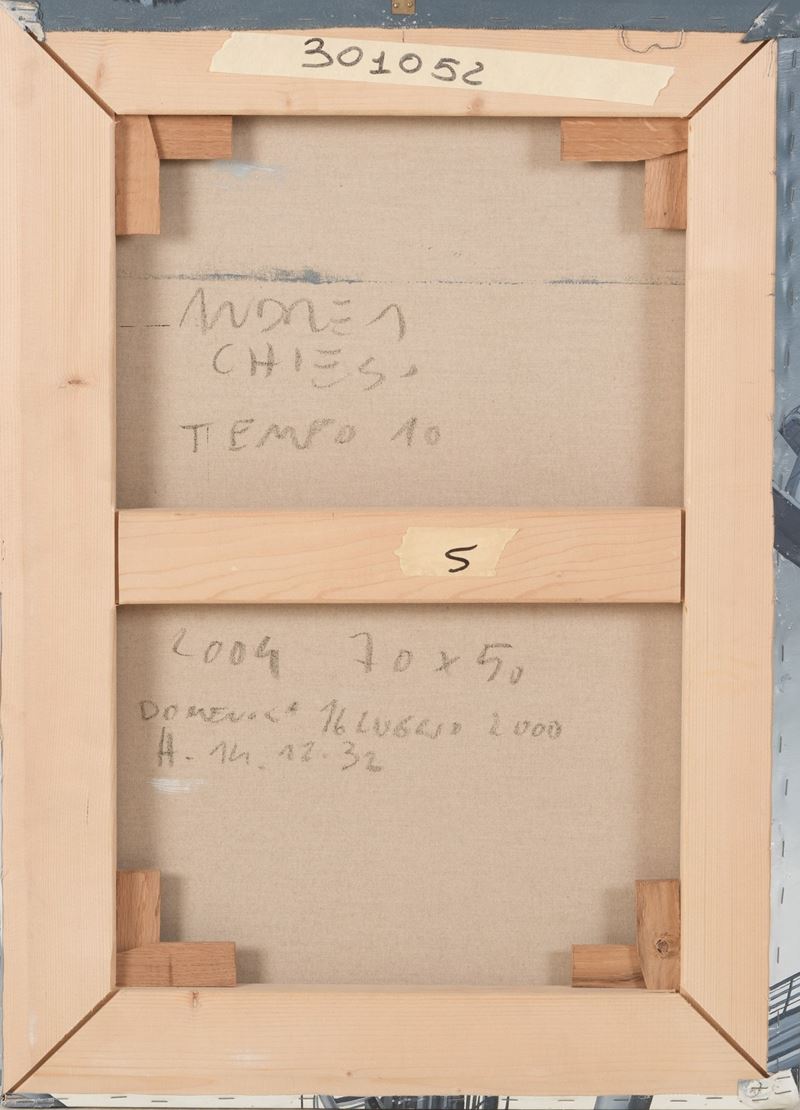 301052
ANDREA
CHIESI
TEMPO 10
5
2004 70 x 50
DOMENICA 16 LUGLIO 2000
H. 14.12.32